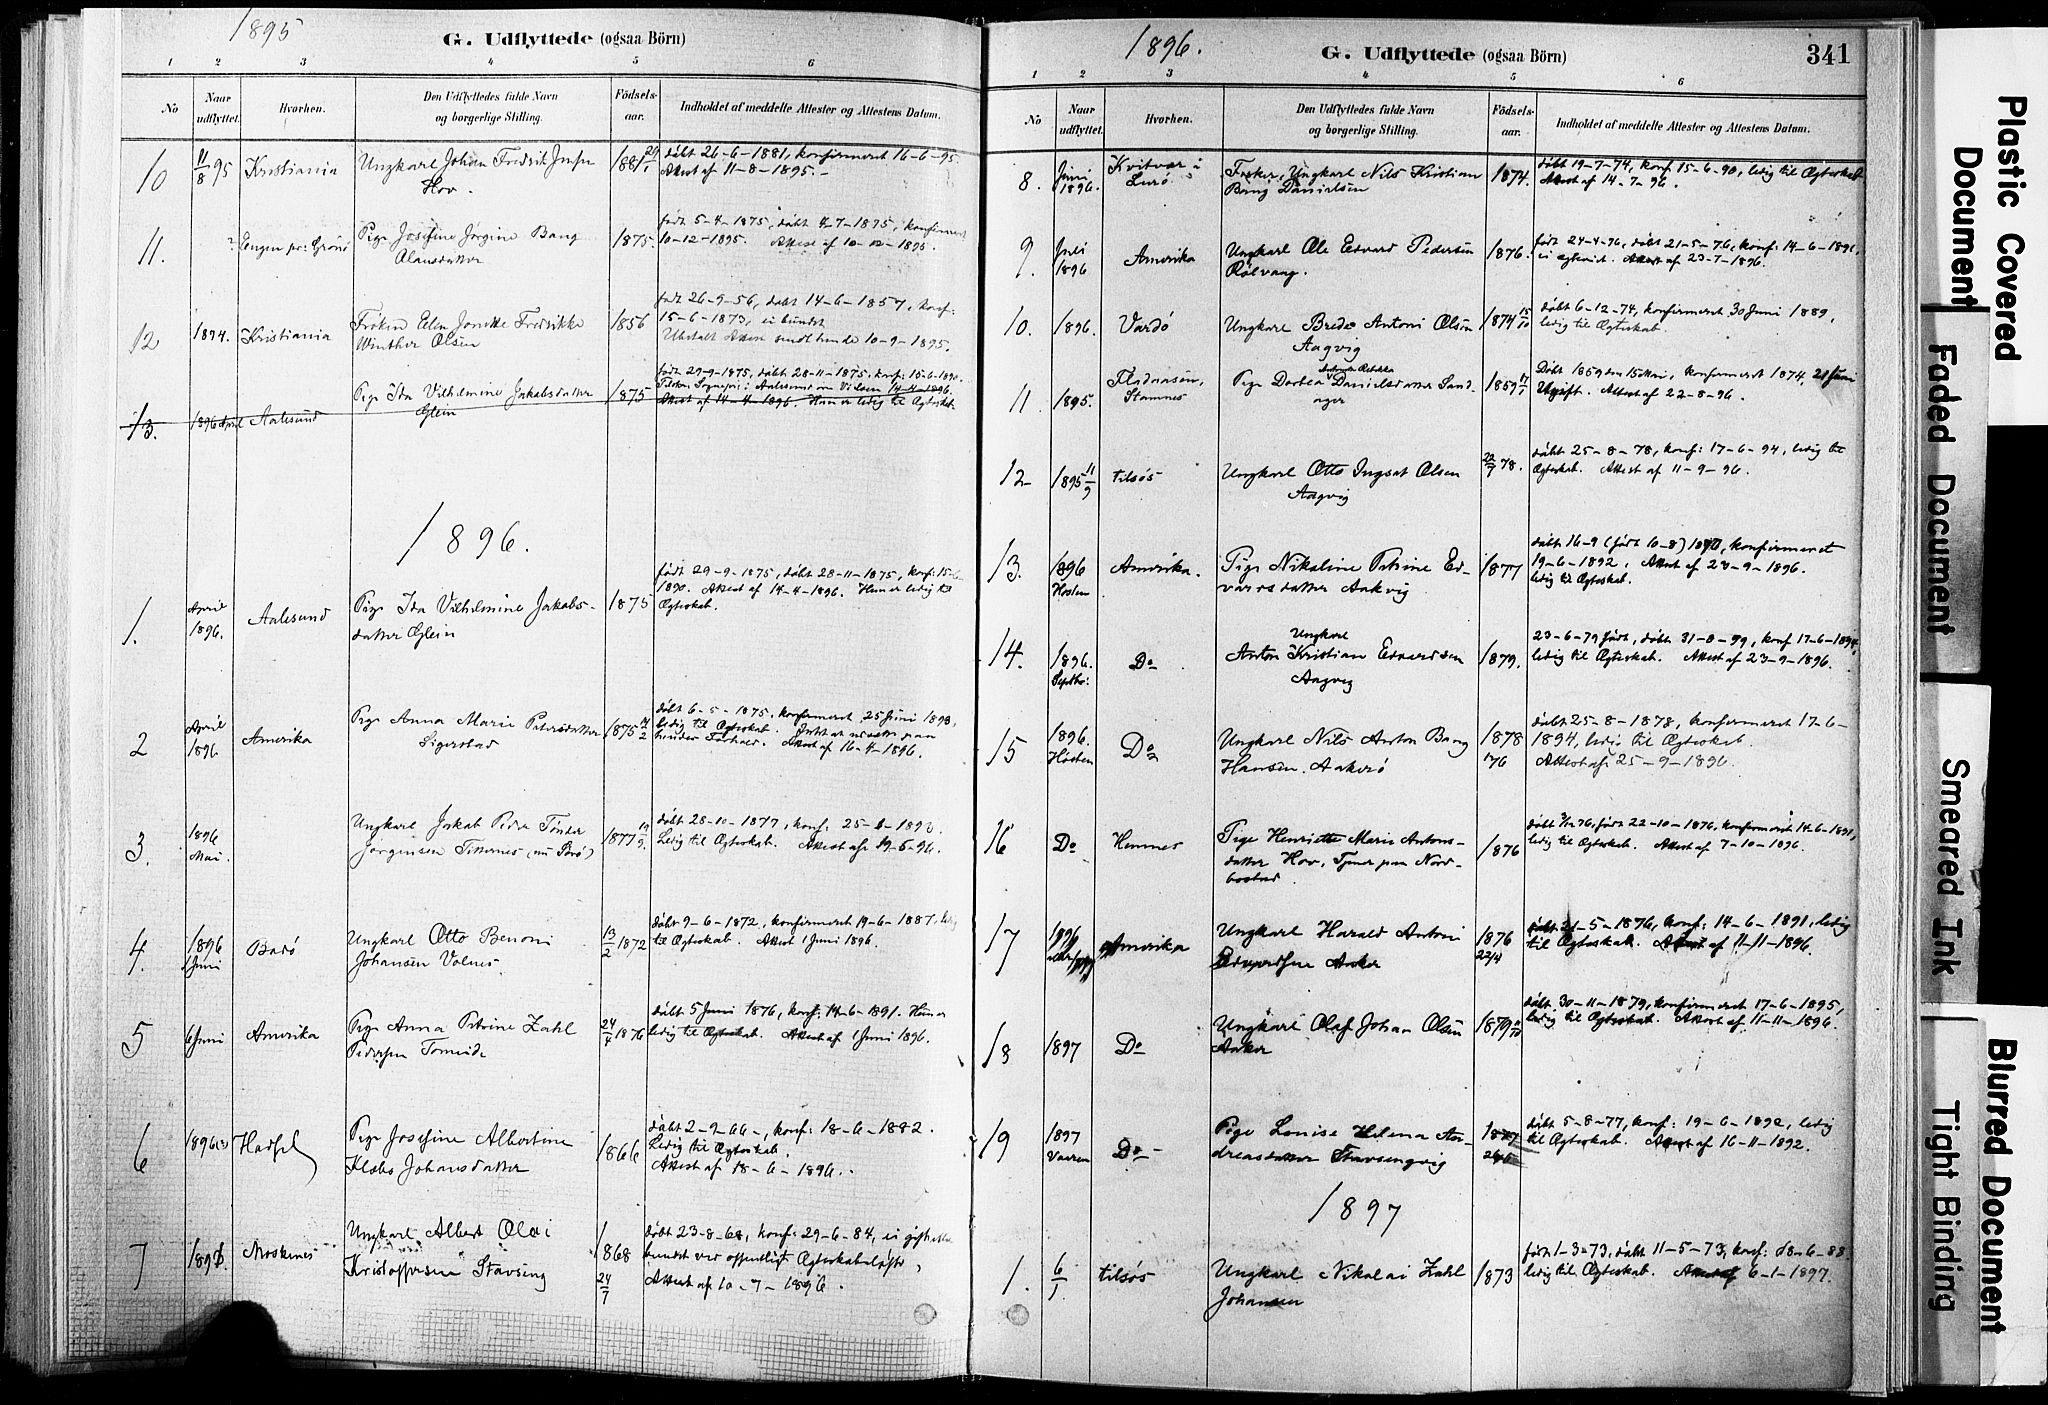 1895
G. Udflyttede (ogsaa Börn)
1 2 3 4 5 6
No
Naar udflyttet.
Hvorhen.
Den Udflyttedes fulde Navn og borgerlige Stilling.
Födsels-aar.
Indholdet af meddelte Attester og Attestens Datum.
10 11/8 95 Kristiania Ungkarl Johan Fredrik Jensen 1881 29/1 døbt 26-6-1881, konfirmeret 16-6-95.
Hov Attest af 11-8-1895.-
11. Pige Josefine Jørgine Bang 1875. født 5-4-1875, døbt 4-7-1875, konfirmeret
Olausdatter 10-12-1895. Attest af 10-12-1895.
12 1894. Kristiania Frøken Elen Jonette Fredrikke 1856 født 26-9-56, døbt 14-6-1857, konf:
Winther Olsen 15-6-1873, ei bundet
Attest sendt hende 10-9-1895.
13. 1896 April Aalesund Pige Ida Vilhelmine Jakobsdatter 1875 født 29-9-1875, døbt 28-11-1875, konf: 15-6-1890.
Glein Attest af 14-4-1896. Hun er ledig til Ægteskab.
1896.
1. April 1896. Aalesund Pige Ida Vilhelmine Jakobs- 1875 født 29-9-1875, døbt 28-11-1875, konf: 15-6-
datter Glein 1890. Attest af 14-4-1896. Hun er ledig til
Ægteskab.
2 April 1896 Amerika Pige Anna Marie Petersdatter 1875 døbt 6-5-1875, konfirmeret 25 Juni 1893,
Sigerstad ledig til Ægteskab.
hindre Forhold. Attest af 16-4-1896.
3. 1896 Mai. Ungkarl Jakob Peder Tønder 1877 døbt 28-10-1877, konf: 25-6-1893.
Jørgensen Ledig til Ægteskab. Attest af 19-5-96.
4. 1896 Juni Ungkarl Otto Benoni 13/2 1872 døbt 9-6-1872, konfirmeret 19-6-1887, ledig
Johansen Volnes til Ægteskab. Attest 1 Juni 1896.
5 Juni Amerika Pige Anna Petrine Zahl 24/4 1876 døbt 5 Juni 1876, konf: 14-6-1891. Hun er
Pedersen Tomeide ledig til Ægteskab. Attest af 1 Juni 1896.
6 1896 Hadsel Pige Josefine Albertine 1866 døbt 2-9-66-, konf: 18-6-1882.
Klæbo Johansdatter Ledig til Ægteskab.
Attest af 18-6-1896.-
7 Moskenes Ungkarl Albert Olai 1868 døbt 23-8-68, konf: 29-6-84, ei gift eller
Kristoffersen Stavseng 24/7 bundet ved offentligt Ægteskabsløfte,
Attest af 10-7-1896.
1896.
G. Udflyttede (ogsaa Börn)
341
1 2 3 4 5 6
No
Naar udflyttet.
Hvorhen.
Den Udflyttedes fulde Navn og borgerlige Stilling.
Födsels-aar.
Indholdet af meddelte Attester og Attestens Datum.
8. Juni 1896. Kvitvar i Lurø Fisker, Ungkarl Nils Kristian 1874. døbt 19-7-74, konf 15-6-90, ledig til Ægteskab
Bang Danielsen Attest af 14-7-96.
9. Juli 1896 Amerika Ungkarl Ole Edvard Pedersen 1876. født 24-4-76, døbt 21-5-76, konf: 14-6-1891,
Rølvaag. Attest af 23-7-1896.
10. 1896. Vardø Ungkarl Brede Antoni Olsen 1874 15/10 døbt 6-12-74, konfirmeret 30 Juni 1889,
Aagvig ledig til Ægteskab.
11. 1895. Stamnes Pige Dortea Danielsdatter Sand- 1859 Døbt 1859 den 15 Mai, konfirmeret 1874, 21 Juni
ager Ugift. Attest af 22-8-96.
12- 1895 11/9 tilsøs Ungkarl Otto Ingvat Olsen 22/7 78. døbt 25-8-78, konf: 17-6-94, ledig til
Aagvig Ægteskab. Attest af 11-9-96.
13. 1896 Høsten Amerika. Pige Nikoline Petrine Ed- 1877 døbt 16-9 (født 10-8) 1877, konfirmeret
vardsdatter Aakvig 19-6-1892, Attest af 23-9-1896.
ledig til Ægteskab.
14. 1896. Septbr: Do Ungkarl 1879. 23-6-79 født, døbt 31-8-79, konf 17-6-1894,
Anton Kristian Edvardsen ledig til Ægteskab. Attest af 23-9-1896.
Aagvig
15 1896. Høsten Do Ungkarl Nils Anton Bang 1878 døbt 25-8-1878, konfirmeret 17-6-
Hansen. Aakerø 1894, ledig til Ægteskab.
Attest af 25-9-1896.
16 Do Hemnes Pige Henriette Marie Antons- 1876 født 22-10-1876, konfirmeret 14-6-1891,
datter Hov, Tjener paa Nord- ledig til Ægteskab. Attest af 7-10-1896.
bostad
17 1896 Amerika Ungkarl Harald Antoni 1876 døbt 21-5-1876, konf: 14-6-1891, ledig
Edvardsen Aaker 22/4 til Ægteskab. Attest af 11-11-1896.
18 1897 Do Ungkarl Olaf Johan Olsen 1879 døbt 30-11-1879, konfirmeret 17-6-1895,
Aaker ledig til Ægteskab. Attest af 11-11-1896.
19 1897 Vaaren Do Pige Lovise Helena An- 1877 døbt 5-8-77, konf: 19-6-1892, ledig
dreasdatter Stavsengvig til Ægteskab. Attest af 16-11-1892.
1897
1. 6/1 tilsøs Ungkarl Nikolai Zahl 1873 født 1-3-73, døbt 11-5-73, konf: 
Johansen ledig til Ægteskab. Attest af 6-1-1897.
Plastic Covered Document
Faded Document
Smeared Ink
Blurred Document
Tight Binding